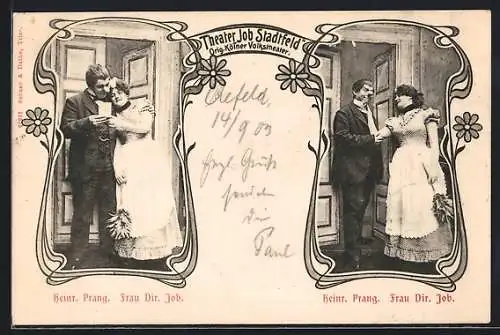 "Theater Job Stadtfeld"
Orig. Kölner Volkstheater.
Crefeld,
14/9 03
Herzl. Gruß
sendet
Dir
Paul
Heinr. Prang. Frau Dir. Job.
Heinr. Prang. Frau Dir. Job.
Schaar & Dathe, Trier.